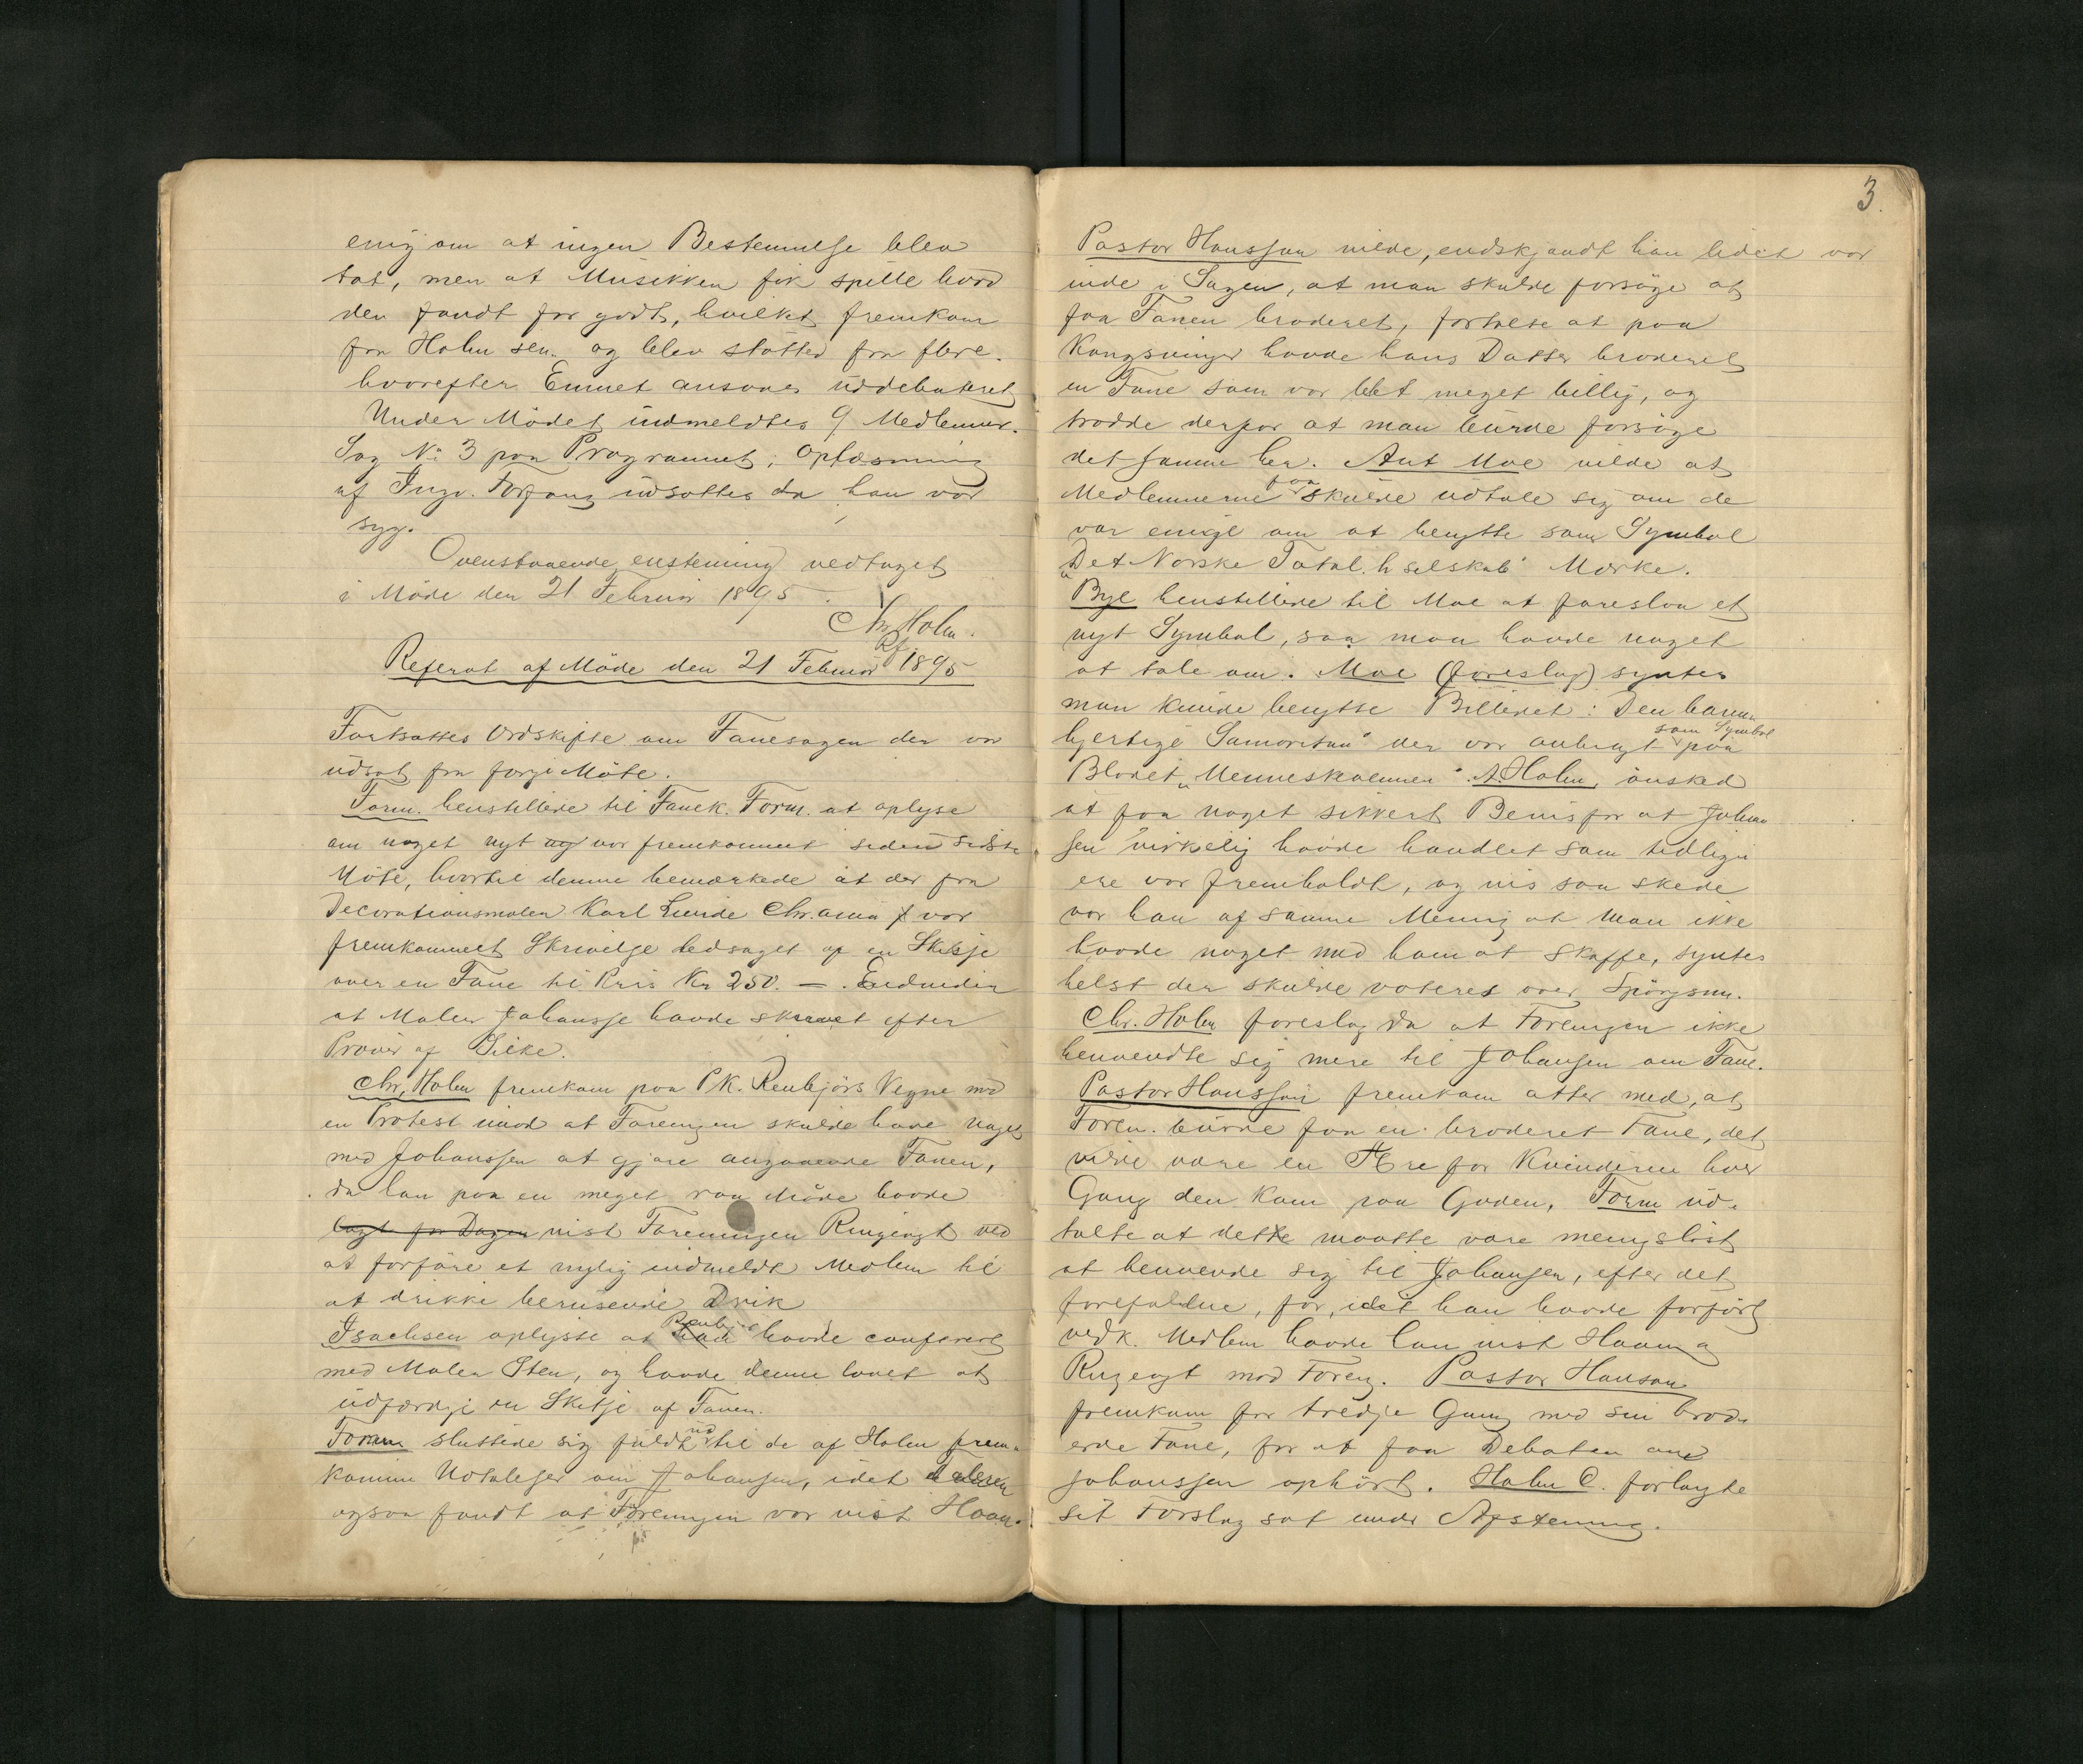 enig om at ingen Bestemmelse blev
tat, men at Musikken fik spille hvad
den fandt for godt, hvilket fremkom
fra Holm sen. og blev støttet fra flere.
hvorefter Emnet ansaaes uddebateret
Under Mödet indmeldtes 9 Medlemmer.
Sag No 3 paa Programmet; Oplæsning
af Ingv. Forfang udsattes da han var
syg.
Ovenstaaende enstemmig vedtaget
i Möde den 21 Februar 1895.
Chr Holm.
Rf
Referat af Möde den 21 Februar 1895
Fortsattes Ordskifte om Fanesagen der var
udsat fra forje Möte.
Form. henstillede til Fanek. Form. at oplyse
om noget nyt var fremkommet siden sidste
Möte, hvortil denne bemærkede at der fra
Decorationsmaler Karl Lunde Chr.ania var
fremkommet Skrivelse ledsaget af en Skitsje
over en Fane til Pris Kr 250. —. Endvidere
at Maler Johansse havde skrevet efter
Pröver af Silke.
Chr. Holm fremkom paa P.K. Renbjörs Vegne med
en Protest imod at Foreningen skulde have noget
med Johanssen at gjøre angaaende Fanen,
da han paa en meget raa Måde havde
lagt for Dagen vist Foreningen Ringeagt ved
at forföre et nylig indmeldt Medlem til
at drikke berusende Drik
Isachsen oplyste at Renbjör havde confereret
med Maler Sten, og havde denne lovet at
udfærdige en Skitsje af Fanen.
Forman sluttede sig fuldt ud til de af Holm frem-
komne Udtalelser om Johansen, idet
ogsaa fandt at Foreningen var vist Haan.
3.
Pastor Hansson vilde, endskjøndt han lidet var
inde i Sagen, at man skulde forsöge at
faa Fanen broderet, fortalte at paa
Kongsvinger havde hans Datter broderet
en Fane som var blet meget billig, og
trodde derfor at man burde forsöge
det samme her. Ant Moe vilde at
Medlemmerne faa skulde udtale sig om de
var enige om at benytte som Symbol
"Det Norske Total.h selskab" Mærke.
Bye henstillede til Moe at foreslaa et
nyt Symbol, saa man havde noget
at tale om. Moe (foreslag) syntes
man kunde benytte Billedet: Den barm-
hjertige Samaritan" der var anbragt som Symbol paa
Bladet "Menneskevennen". A. Holm, önsked
at faa noget sikkert Bevis for at Johan-
sen virkelig havde handlet som tidlige-
ere var fremholdt, og vis saa skede
var han af samme Mening at man ikke
havde noget med ham at skaffe, syntes
helst der skulde voteres over Spörgsm.
Chr. Holm foreslog da at Foreningen ikke
henvendte sig mere til Johansen om Fane.
Pastor Hansson fremkom atter med, at
Foren. burde faa en broderet Fane, det
vilde være en Ære for Kvinderne hver
Gang den kom paa Gaden, Form ud-
talte at dette maatte være meningslöst
at henvende sig til Johansen, efter det
forefaldne, for, idet han havde forfört
vedk. Medlem havde han vist Haan og
Ringeagt mod Foreng. Pastor Hanson
fremkom for tredje Gang med sin brod-
erde Fane, for at faa Debatten om
Johanssen ophört. Holm C. forlangte
sit Forslag sat under Afstemning.